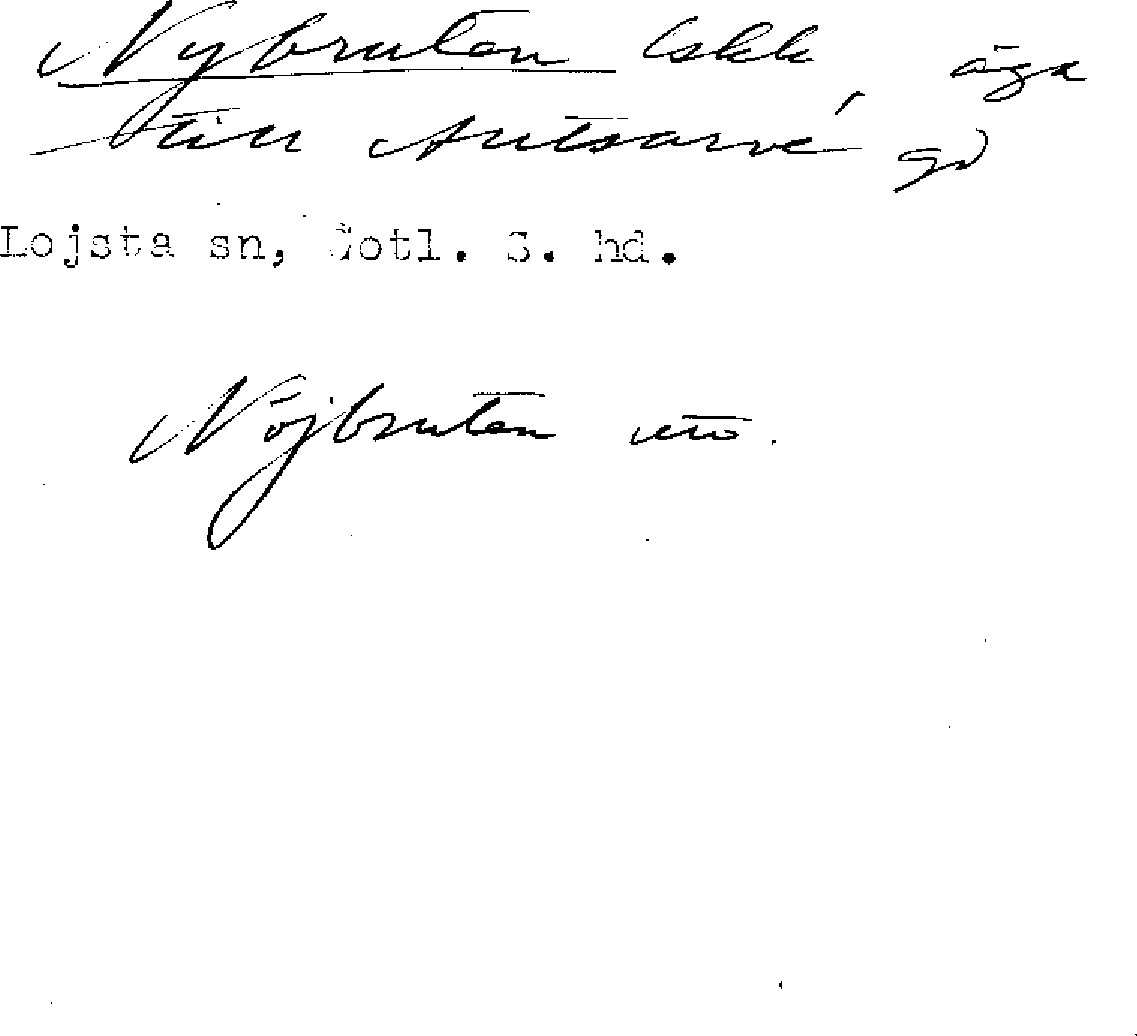 Nybruten lskk, äga
till Autsarve gd
Lojsta sn, Gotl. S. hd.
Nöjbruten uto.